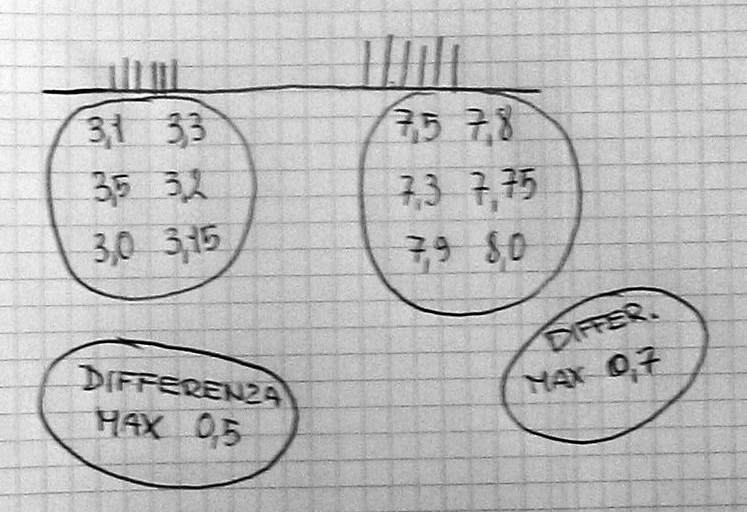 3,1 3,3
3,5 3,2
3,0 3,15
7,5 7,8
7,3 7,75
7,9 8,0
DIFFERENZA
MAX 0,5
DIFFER.
MAX 0,7